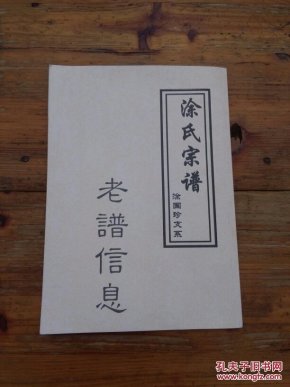 涂氏宗谱
涂国珍支系
老譜信息
孔夫子旧书网
www.kongfz.com